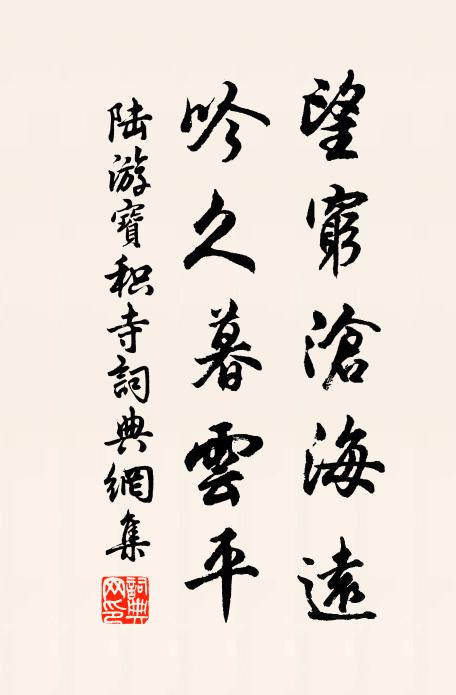 望窮滄海遠
吟久暮雲平
陸游寶积寺詞典網集
詞典网印